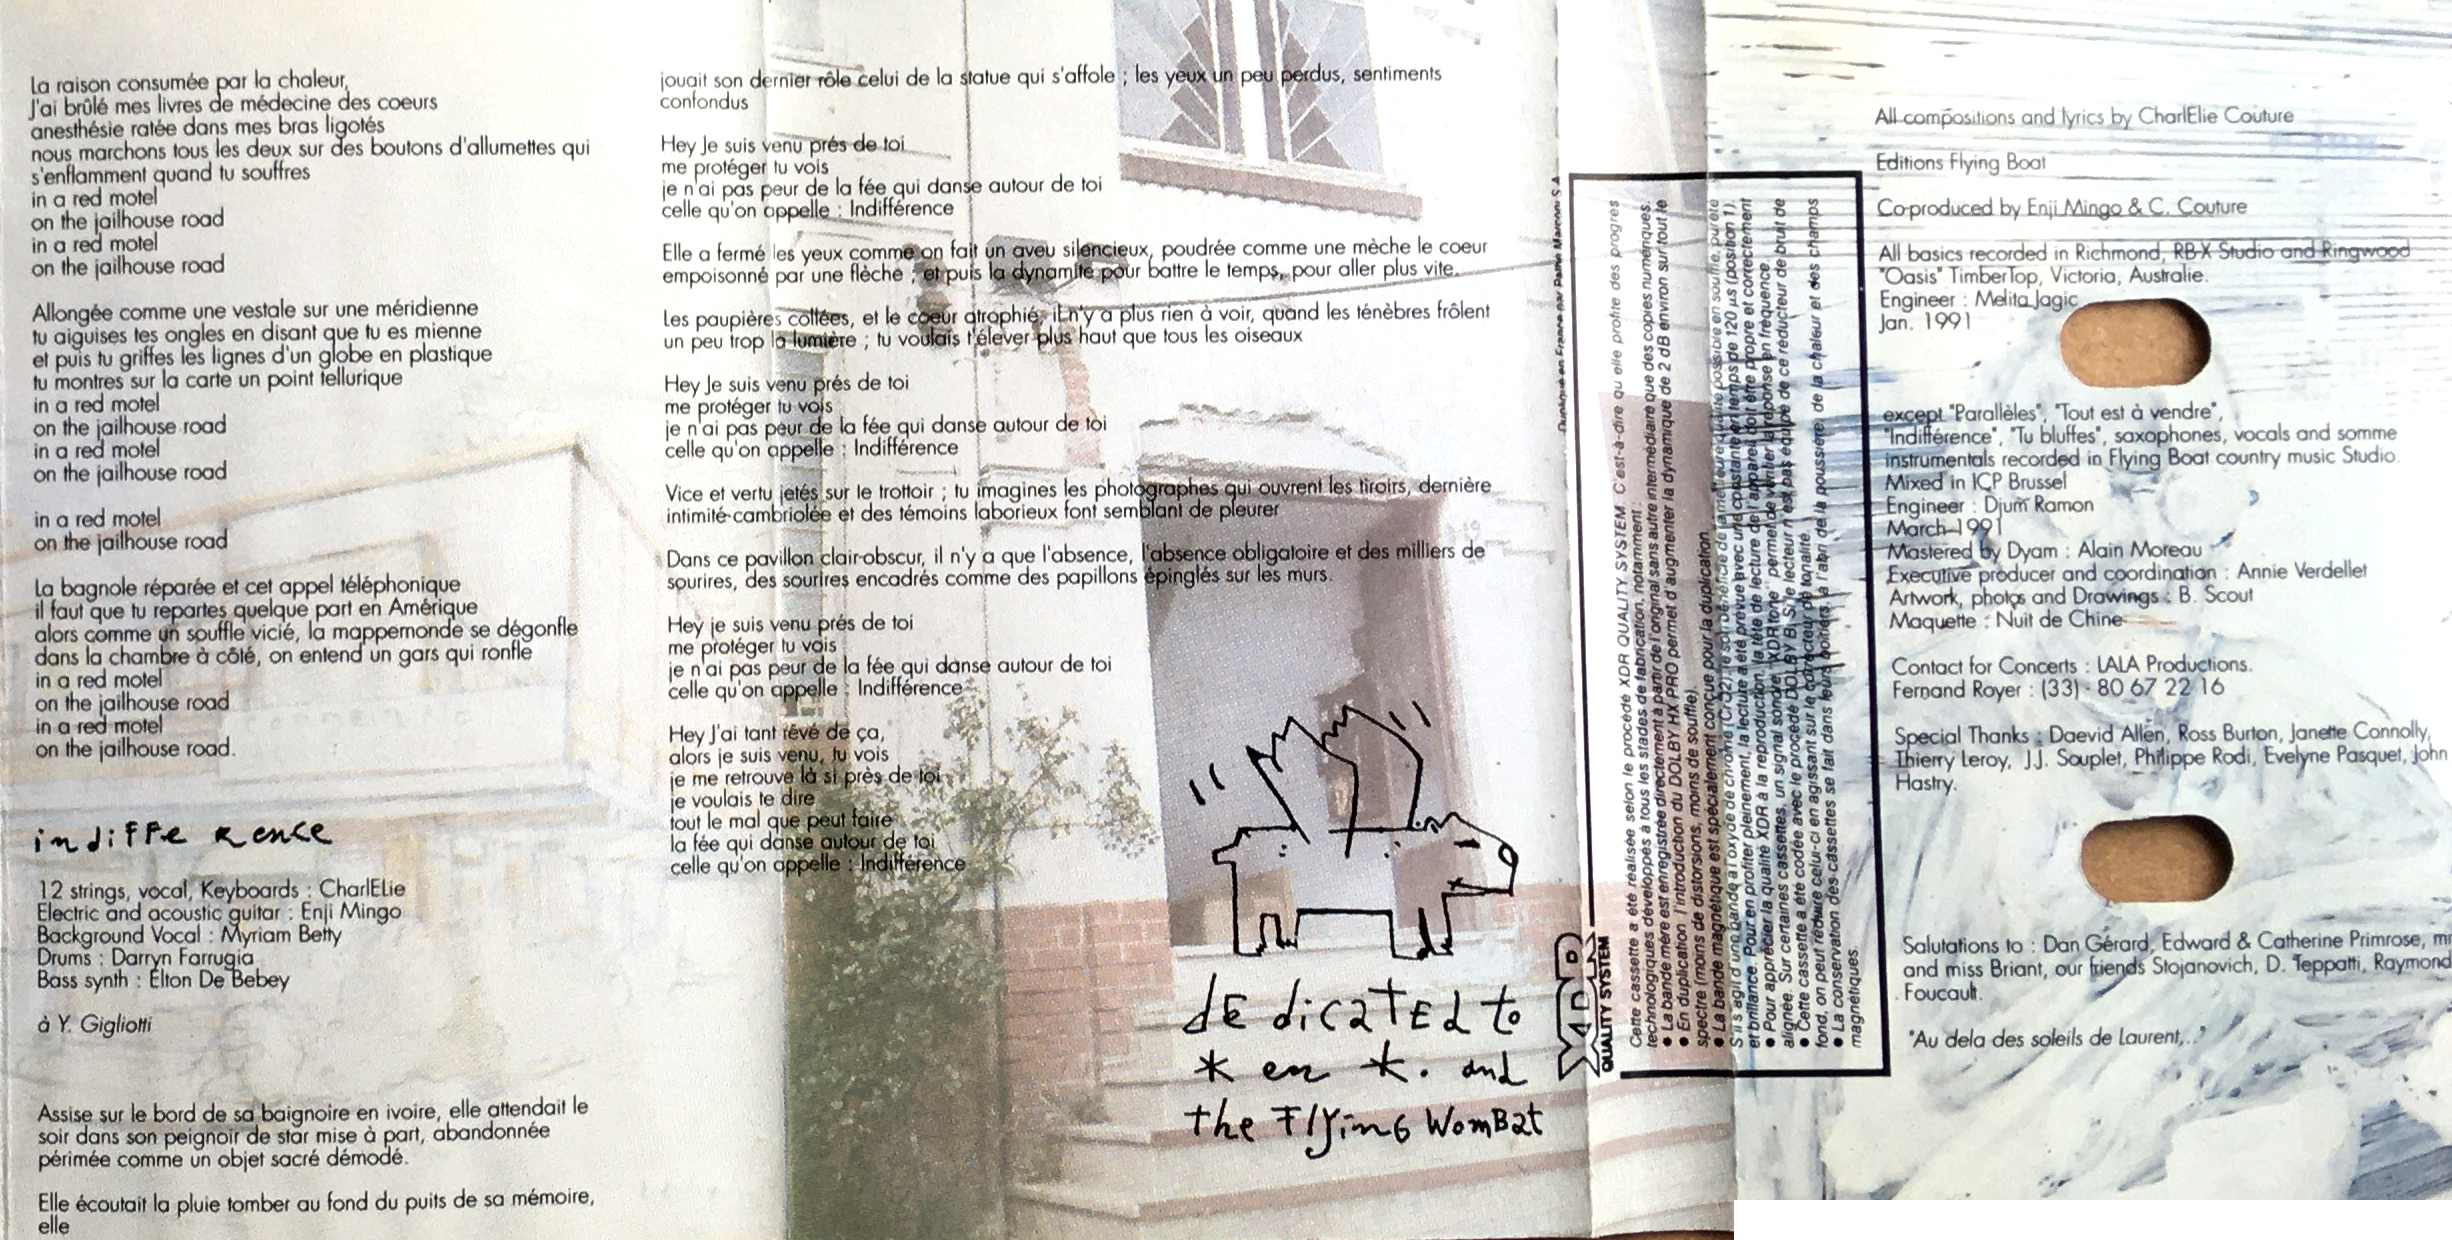 La raison consumée par la chaleur,
J'ai brûlé mes livres de médecine des coeurs
anesthésie ratée dans mes bras ligotés
nous marchons tous les deux sur des boutons d'allumettes qui
s'enflamment quand tu souffres
in a red motel
on the jailhouse road
in a red motel
on the jailhouse road
Allongée comme une vestale sur une méridienne
tu aiguises tes ongles en disant que tu es mienne
et puis tu griffes les lignes d'un globe en plastique
tu montres sur la carte un point tellurique
in a red motel
on the jailhouse road
in a red motel
on the jailhouse road
in a red motel
on the jailhouse road
La bagnole réparée et cet appel téléphonique
il faut que tu repartes quelque part en Amérique
alors comme un souffle vicié, la mappemonde se dégonfle
dans la chambre à côté, on entend un gars qui ronfle
in a red motel
on the jailhouse road
in a red motel
on the jailhouse road.
indiffe rence
12 strings, vocal, Keyboards : CharlELie
Electric and acoustic guitar : Enji Mingo
Background Vocal : Myriam Betty
Drums : Darryn Farrugia
Bass synth : Elton De Bebey
à Y. Gigliotti
Assise sur le bord de sa baignoire en ivoire, elle attendait le
soir dans son peignoir de star mise à part, abandonnée
périmée comme un objet sacré démodé.
Elle écoutait la pluie tomber au fond du puits de sa mémoire,
elle
jouait son dernier rôle celui de la statue qui s'affole ; les yeux un peu perdus, sentiments
confondus
Hey Je suis venu prés de toi
me protéger tu vois
je n'ai pas peur de la fée qui danse autour de toi
celle qu'on appelle : Indifférence
Elle a fermé les yeux comme on fait un aveu silencieux, poudrée comme une mèche le coeur
empoisonné par une flèche ; et puis la dynamite pour battre le temps, pour aller plus vite.
Les paupières collées, et le coeur atrophié, il n'y a plus rien à voir, quand les ténèbres frôlent
un peu trop la lumière ; tu voulais t'élever plus haut que tous les oiseaux
Hey Je suis venu prés de toi
me protéger tu vois
je n'ai pas peur de la fée qui danse autour de toi
celle qu'on appelle : Indifférence
Vice et vertu jetés sur le trottoir ; tu imagines les photographes qui ouvrent les tiroirs, dernière
intimité cambriolée et des témoins laborieux font semblant de pleurer
Dans ce pavillon clair-obscur, il n'y a que l'absence, l'absence obligatoire et des milliers de
sourires, des sourires encadrés comme des papillons épinglés sur les murs.
Hey je suis venu prés de toi
me protéger tu vois
je n'ai pas peur de la fée qui danse autour de toi
celle qu'on appelle : Indifférence
Hey J'ai tant rêvé de ça,
alors je suis venu, tu vois
je me retrouve là si près de toi
je voulais te dire
tout le mal que peut faire
la fée qui danse autour de toi
celle qu'on appelle : Indifférence
dEdicaTEd to
* en *. and
the Flying WomBat
Dupliqué en France par Pathé Marconi S.A.
XDR
QUALITY SYSTEM
Cette cassette a été réalisée selon le procédé XDR QUALITY SYSTEM. C'est-à-dire qu'elle profite des progrès
technologiques développés à tous les stades de fabrication, notamment :
● La bande mère est enregistrée directement à partir de l'original sans autre intermédiaire que des copies numériques.
● En duplication, l'introduction du DOLBY HX PRO permet d'augmenter la dynamique de 2 dB environ sur tout le
spectre (moins de distorsions, moins de souffle).
● La bande magnétique est spécialement conçue pour la duplication.
S'il s'agit d'une bande à l'oxyde de chrome (CrO2), le son bénéficie de la meilleure qualité possible en souffle, pureté
et brillance. Pour en profiter pleinement, la lecture a été prévue avec une constante en temps de 120 µs (position 1).
● Pour apprécier la qualité XDR à la reproduction, la tête de lecture de l'appareil doit être propre et correctement
alignée. Sur certaines cassettes, un signal sonore "XDR tone" permet de vérifier la réponse en fréquence.
● Cette cassette a été codée avec le procédé DOLBY B. Si le lecteur n'est pas équipé de ce réducteur de bruit de
fond, on peut réduire celui-ci en agissant sur le correcteur de tonalité.
● La conservation des cassettes se fait dans leurs boîtiers, à l'abri de la poussière, de la chaleur et des champs
magnétiques.
All compositions and lyrics by CharlElie Couture
Editions Flying Boat
Co-produced by Enji Mingo & C. Couture
All basics recorded in Richmond, RB-X Studio and Ringwood
"Oasis" TimberTop, Victoria, Australie.
Engineer : Melita Jagic
Jan. 1991
except "Parallèles", "Tout est à vendre",
"Indifférence", "Tu bluffes", saxophones, vocals and somme
instrumentals recorded in Flying Boat country music Studio.
Mixed in ICP Brussel
Engineer : Djum Ramon
March 1991
Mastered by Dyam : Alain Moreau
Executive producer and coordination : Annie Verdellet
Artwork, photos and Drawings : B. Scout
Maquette : Nuit de Chine
Contact for Concerts : LALA Productions.
Fernand Royer : (33) - 80 67 22 16
Special Thanks : Daevid Allen, Ross Burton, Janette Connolly,
Thierry Leroy, J.J. Souplet, Philippe Rodi, Evelyne Pasquet, John
Hastry.
Salutations to : Dan Gérard, Edward & Catherine Primrose, mr
and miss Briant, our friends Stojanovich, D. Teppatti, Raymond
Foucault.
"Au dela des soleils de Laurent,..."